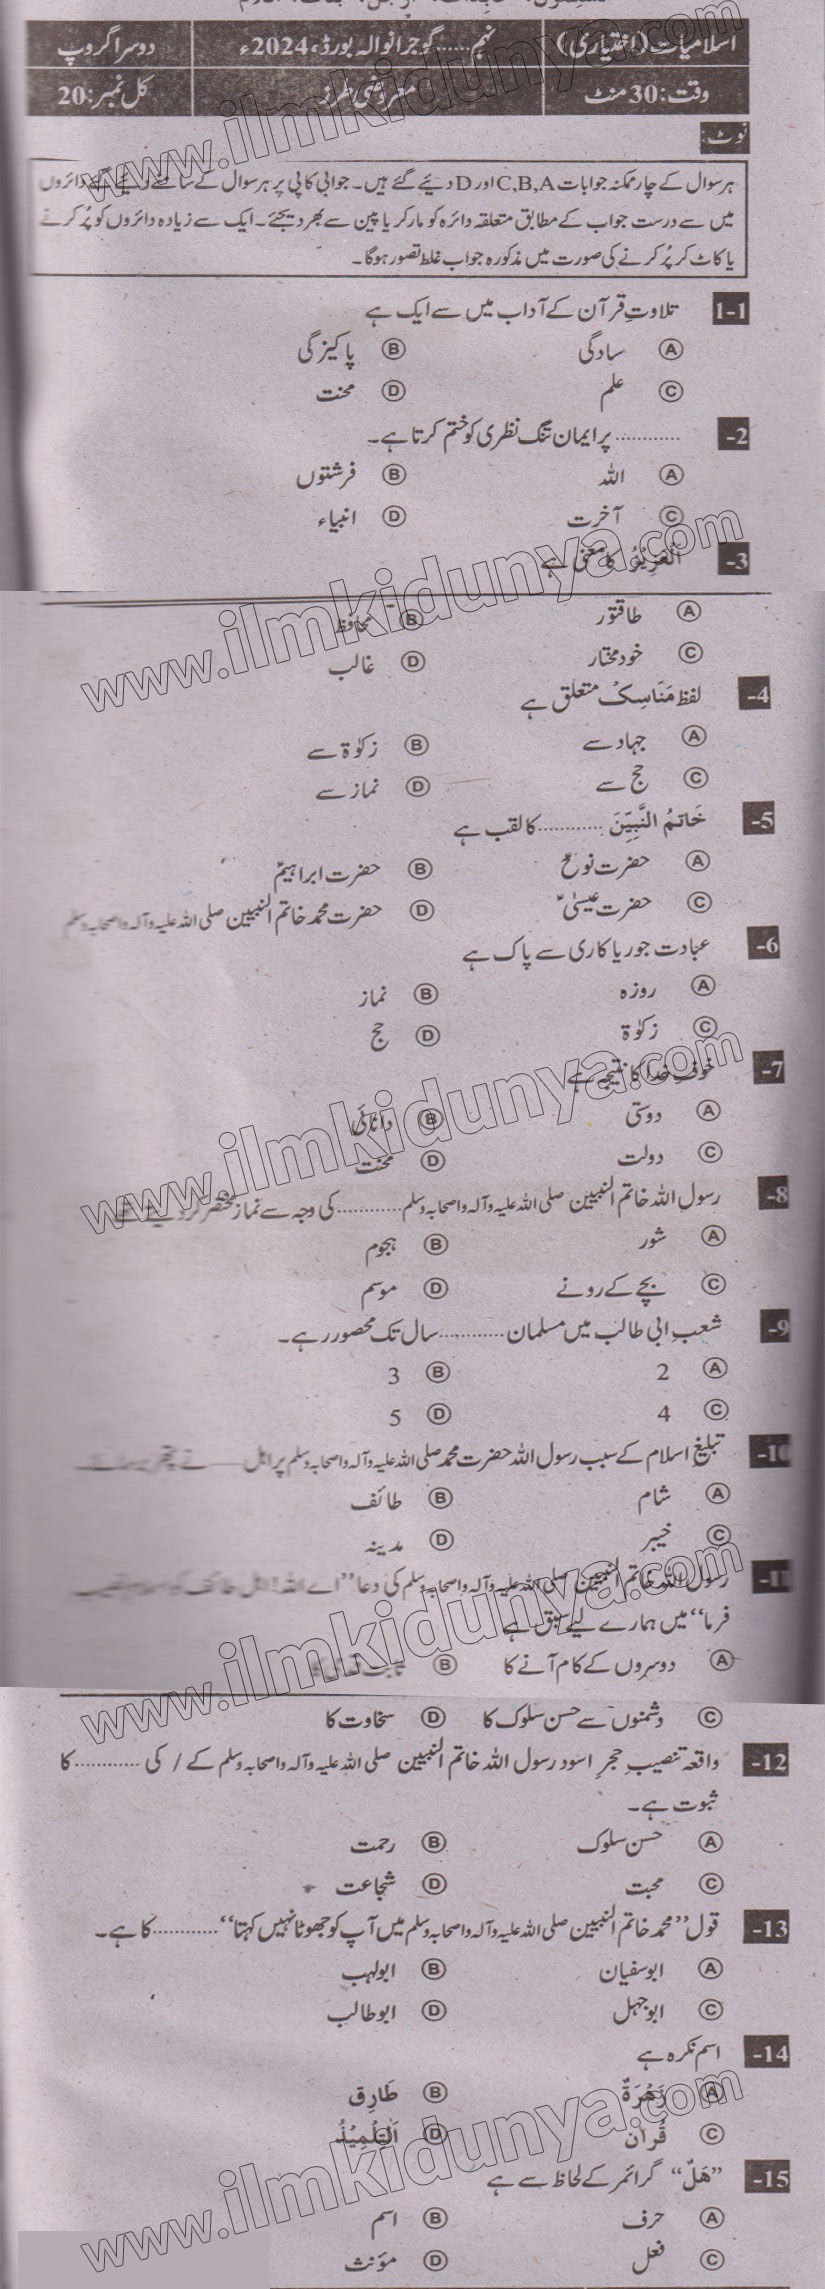 اسلامیات (اختیاری) نہم......گوجرانوالہ بورڈ، 2024ء دوسرا گروپ
وقت: 30 منٹ معروضی طرز کل نمبر: 20
نوٹ:
ہر سوال کے چار ممکنہ جوابات C,B,A اور D دیئے گئے ہیں۔ جوابی کاپی پر ہر سوال کے سامنے دیئے گئے دائروں
میں سے درست جواب کے مطابق متعلقہ دائرہ کو مارکر یا پین سے بھر دیجئے۔ ایک سے زیادہ دائروں کو پُر کرنے
یا کاٹ کر پُر کرنے کی صورت میں مذکورہ جواب غلط تصور ہوگا۔
1-1 تلاوتِ قرآن کے آداب میں سے ایک ہے
A سادگی B پاکیزگی
C علم D محنت
2- ............ پر ایمان تنگ نظری کو ختم کرتا ہے۔
A اللہ B فرشتوں
C آخرت D انبیاء
3- اَلْعَزِیْزُ کا معنی ہے
A طاقتور B محافظ
C خود مختار D غالب
4- لفظ مَنَاسِکْ متعلق ہے
A جہاد سے B زکوٰۃ سے
C حج سے D نماز سے
5- خَاتمُ النَّبِیّنَ ............ کا لقب ہے
A حضرت نوحؑ B حضرت ابراہیمؑ
C حضرت عیسیٰؑ D حضرت محمد خاتم النبیین صلی اللہ علیہ وآلہ واصحابہ وسلم
6- عبادت جو ریاکاری سے پاک ہے
A روزہ B نماز
C زکوٰۃ D حج
7- خوفِ خدا کا نتیجہ ہے
A دوستی B دانائی
C دولت D محنت
8- رسول اللہ خاتم النبیین صلی اللہ علیہ وآلہ واصحابہ وسلم............ کی وجہ سے نماز مختصر کر دیتے تھے
A شور B ہجوم
C بچے کے رونے D موسم
9- شعبِ ابی طالب میں مسلمان ............ سال تک محصور رہے۔
A 2 B 3
C 4 D 5
10- تبلیغ اسلام کے سبب رسول اللہ حضرت محمد صلی اللہ علیہ وآلہ واصحابہ وسلم پر اہل ------ نے پتھر برسائے۔
A شام B طائف
C خیبر D مدینہ
11- رسول اللہ خاتم النبیین صلی اللہ علیہ وآلہ واصحابہ وسلم کی دعا ”اے اللہ! اہل طائف کو اسلام نصیب
فرما“ میں ہمارے لیے سبق ہے
A دوسروں کے کام آنے کا B ثابت قدمی کا
C دشمنوں سے حسن سلوک کا D سخاوت کا
12- واقعہ تنصیبِ حجرِ اسود رسول اللہ خاتم النبیین صلی اللہ علیہ وآلہ واصحابہ وسلم کے / کی ............ کا
ثبوت ہے۔
A حسن سلوک B رحمت
C محبت D شجاعت
13- قول ”محمد خاتم النبیین صلی اللہ علیہ وآلہ واصحابہ وسلم میں آپ کو جھوٹا نہیں کہتا“ ............ کا ہے۔
A ابوسفیان B ابولہب
C ابوجہل D ابوطالب
14- اسم نکرہ ہے
A زَهْرَةٌ B طَارِق
C قُرآن D اَلتِّلْمِیْذُ
15- ”هَلْ“ گرائمر کے لحاظ سے ہے
A حرف B اسم
C فعل D مؤنث
www.ilmkidunya.com
www.ilmkidunya.com
www.ilmkidunya.com
www.ilmkidunya.com
www.ilmkidunya.com